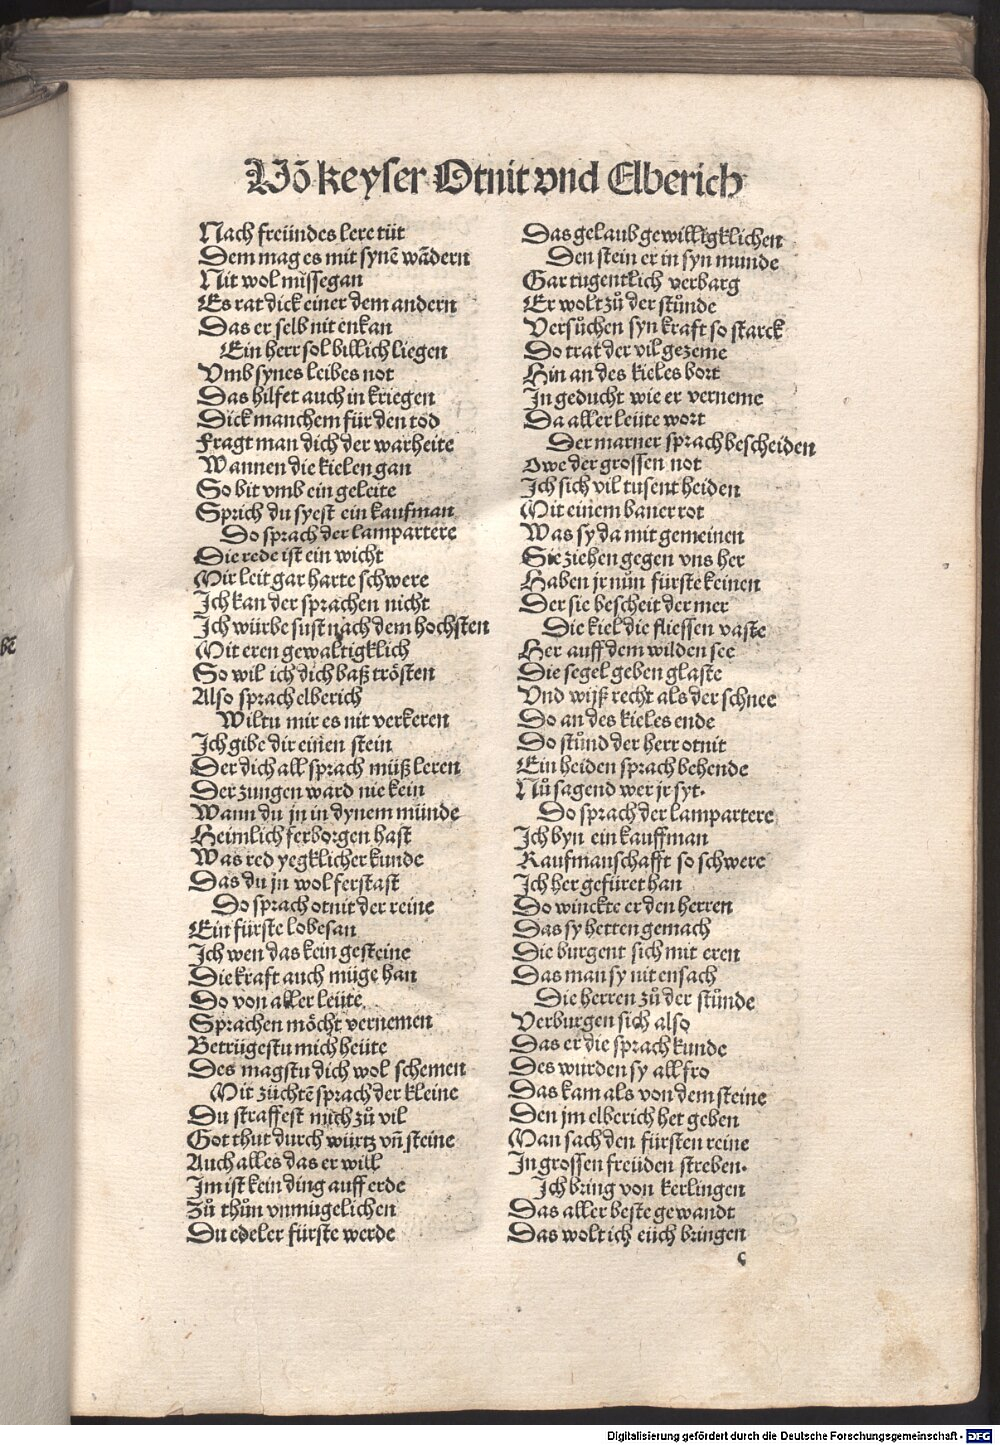 Võ keyser Otnit vnd Elberich
Nach freündes lere tüt
Dem mag es mit synẽ wãdern
Nit wol missegan
Es rat dick einer dem andern
Das er selb nit enkan
Ein herr sol billich liegen
Vmb synes leibes not
Das hilfet auch in kriegen
Dick manchem für den tod
Fragt man dich der warheite
Wannen die kielen gan
So bit vmb ein geleite
Sprich du syest ein kaufman
Do sprach der lampartere
Die rede ist ein wicht
Mir leit gar harte schwere
Ich kan der sprachen nicht
Ich würbe sust nach dem hochsten
Mit eren gewaltigklich
So wil ich dich baß trösten
Also sprach elberich
Wiltu mir es nit verkeren
Ich gibe dir einen stein
Der dich all sprach müß leren
Der zungen ward nie kein
Wann du jn in dynem münde
Heimlich ferborgen hast
Was red yegklicher kunde
Das du jn wol ferstast
Do sprach otnit der reine
Ein fürste lobesan
Ich wen das kein gesteine
Die kraft auch müge han
Do von aller leüte
Sprachen möcht vernemen
Betrügestu mich heüte
Des magstu dich wol schemen
Mit züchtẽ sprach der kleine
Du straffest mich zů vil
Got thut durch würtz vñ steine
Auch alles das er will
Im ist kein ding auff erde
Zů thůn vnmügelichen
Du edeler fürste werde
Das gelaub gewilligklichen
Den stein er in syn munde
Gar tugentlich verbarg
Er wolt zů der stůnde
Versůchen syn kraft so starck
Do trat der vil gezeme
Hin an des kieles bort
In geducht wie er verneme
Da aller leüte wort
Der marner sprach bescheiden
Owe der grossen not
Ich sich vil tusent heiden
Mit einem baner rot
Was sy da mit gemeinen
Sie ziehen gegen vns her
Haben jr nün fürste keinen
Der sie bescheit der mer
Die kiel die fliessen vaste
Her auff dem wilden see
Die segel geben glaste
Vnd wijß recht als der schnee
Do an des kieles ende
Do stůnd der herr otnit
Ein heiden sprach behende
Nů sagend wer jr syt.
Do sprach der lampartere
Ich byn ein kauffman
Kaufmanschafft so schwere
Ich her gefüret han
Do winckte er den herren
Das sy hetten gemach
Die burgent sich mit eren
Das man sy nit ensach
Die herren zů der stůnde
Verburgen sich also
Das er die sprach kunde
Des wurden sy all fro
Das kam als von dem steine
Den jm elberich het geben
Man sach den fürsten reine
In grossen freüden streben.
Ich bring von kerlingen
Das aller beste gewandt
Das wolt ich eüch bringen
c
bẽ
Digitalisierung gefördert durch die Deutsche Forschungsgemeinschaft - DFG